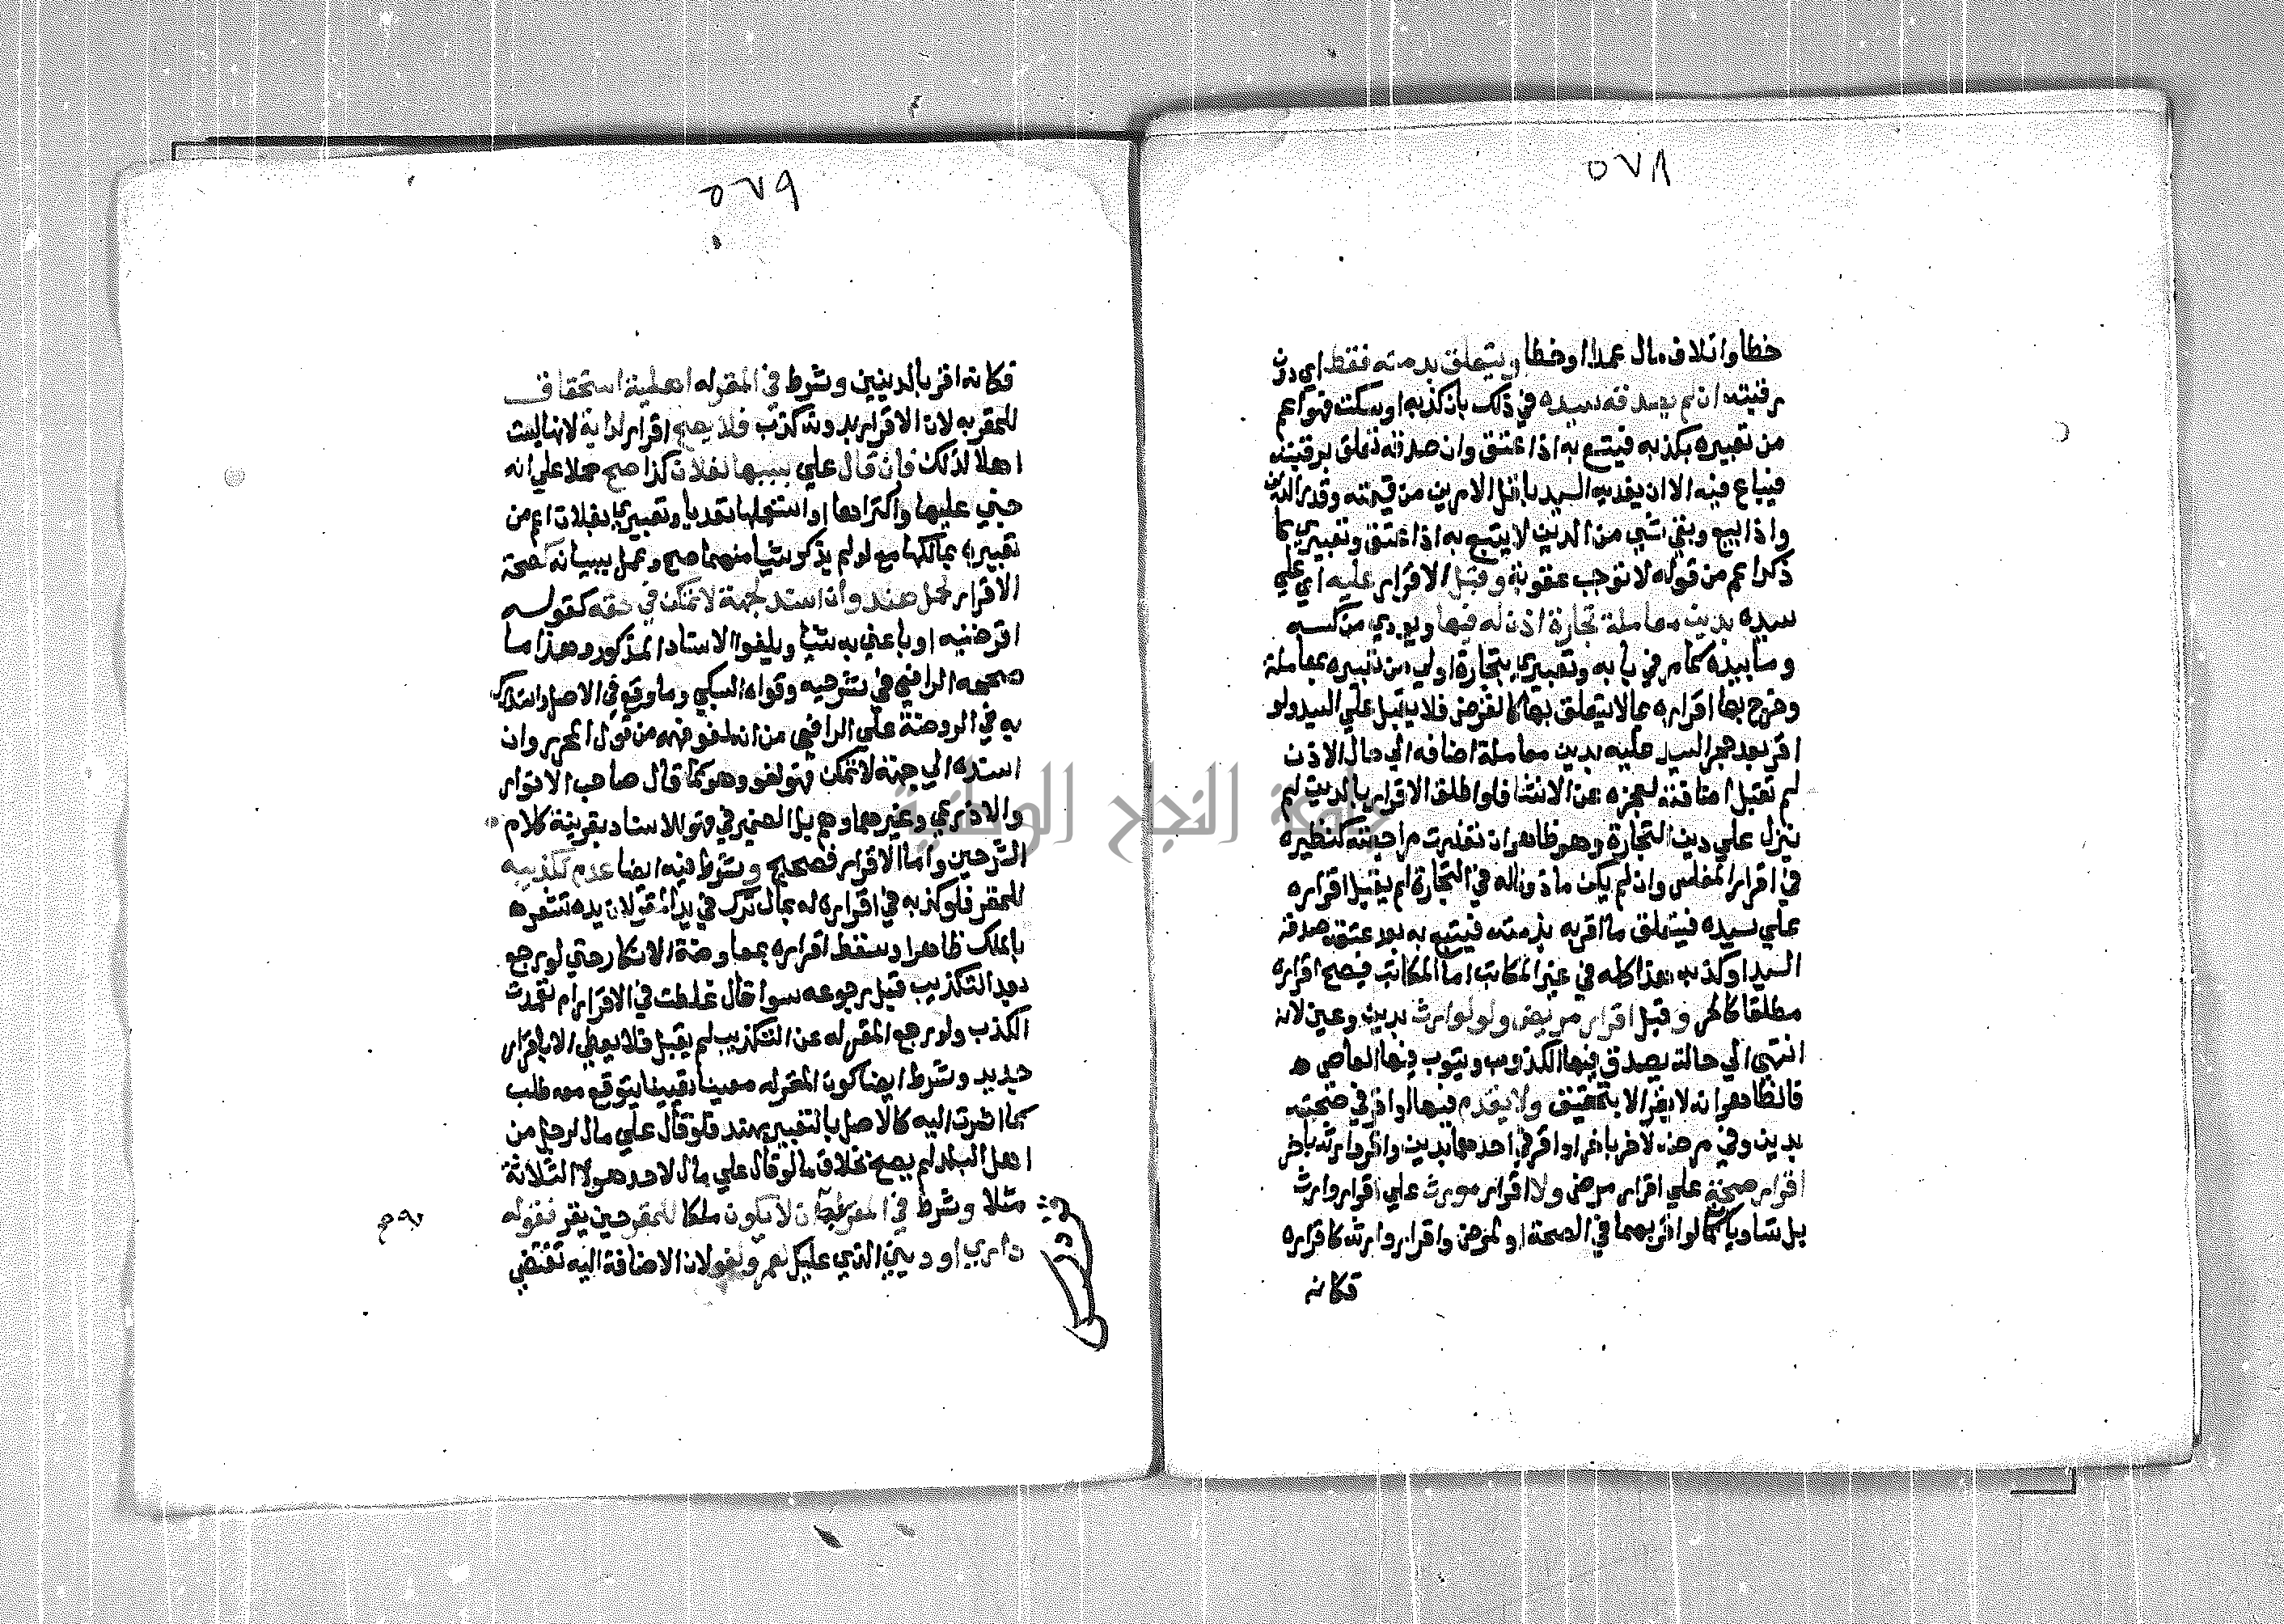 ٥٧٨
خطا واتلاف مال عمدا اوخطا ويتعلق بذمته فقط اي دون
رقبته ان لم يصدقه سيده في ذلك بان كذبه او سكت فهو اعم
من تعبيره بكذبه فيتبع به اذا عتق وان صدقه تعلق برقبته
فيباع فيه الا ان يفديه السيد باقل الامرين من قيمته وقدر الدين
واذا بيع وبقي شي من الدين لا يتبع به اذا عتق وتعبيري بما
ذكر اعم من قوله لا توجب عقوبة وقبل الاقرار عليه اي علي
سيده بدين معاملة تجارة اذن له فيها ويودي من كسبه
وما بيده كما مر في بابه وتعبيري بتجارة اولي من تعبيره بمعاملة
وخرج بها اقراره بما لا يتعلق بها كالقرض فلا يقبل علي السيد ولو
اقر بعد حجر السيد عليه بدين معاملة اضافه الي حال الاذن
لم تقبل اضافته لعجزه عن الانشا فلو اطلق الاقرار بالدين لم
ينزل علي دين التجارة وهو ظاهر ان تعذرت مراجعته كنظيره
في اقرار المفلس وان لم يكن ماذونا له في التجارة لم يقبل اقراره
علي سيده فيتعلق ما اقر به بذمته فيتبع به بعد عتقه صدقه
السيد او كذبه هذا كله في غير المكاتب اما المكاتب فيصح اقراره
مطلقا كالحر وقبل اقرار مريض ولو لوارث بدين وعين لانه
انتهي الي حالة يصدق فيها الكذوب ويتوب فيها العاصي
فالظاهر انه لا يقر الا بتحقيق ولا يقدم فيها لو اقر في صحته
بدين وفي مرضه لاخر باخر او اقر في احدهما بدين واقر وارثه باخر
اقرار صحة علي اقرار مرض ولا اقرار مورث علي اقرار وارث
بل تساويا كما لو اقر بهما في الصحة او المرض واقرار وارثه كاقراره
فكانه
٥٧٩
فكانه اقر بالدينين وشرط في المقر له اهلية استحقاق
للمقر به لان الاقرار بدونه كذب فلا يصح اقرار لدابة لانها ليست
اهلا لذلك فان قال علي بسببها لفلان كذا صح حملا علي انه
جني عليها واكتراها او استعملها تعديا وتعبيري بفلان اعم من
تعبيره بمالكها مع لو لم يذكر شيا منهما صح وعمل ببيانه كصحة
الاقرار لحمل هند وان اسند لجهة لا تمكن في حقه كقوله
اقرضنيه او باعني به شيا ويلغوا الاسناد المذكور وهذا ما
صححه الرافعي في شرحيه وقواه السبكي وما وقع في الاصل واستدرك
به في الروضة علي الرافعي من انه لغو فهمه من قول المحرر وان
اسنده الي جهة لا تمكن فهو لغو وهو كما قال صاحب الانوار
والاذرعي وغيرهما وهم بل الضمير في فهو للاسناد بقرينة كلام
الشرحين واما الاقرار فصحيح وشرط فيه ايضا عدم تكذيبه
للمقر فلو كذبه في اقراره له بمال ترك في يد المقر لان يده تشعر
بالملك ظاهرا وسقط اقراره بمعارضة الانكار حتي لو رجع
بعد التكذيب قبل رجوعه سوا قال غلطت في الاقرار ام تعمدت
الكذب ولو رجع المقر له عن التكذيب لم يقبل فلا يعطي الا باقرار
جديد وشرط ايضا كون المقر له معينا تعيينا يتوقع معه طلب
كما اشرت اليه كالاصل بالتعبير بهند فلو قال علي مال لرجل من
اهل البلد لم يصح بخلاف ما لو قال علي مال لاحد هولا الثلاثة
مثلا وشرط في المقر به ان لا يكون ملكا للمقر حين يقر فقوله
داري او ديني الذي عليك لعمرو لغو لان الاضافة اليه تقتضي
جامعة النجاح الوطنية